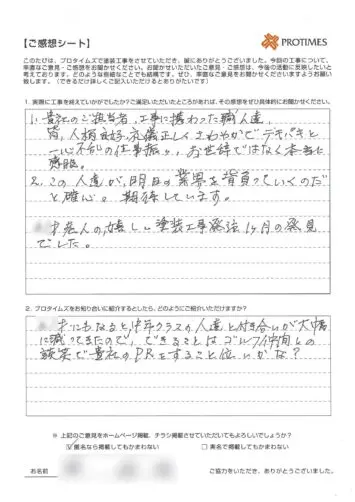 【ご感想シート】
PROTIMES
このたびは、プロタイムズで塗装工事をさせていただき、誠にありがとうございました。今回の工事について、
率直なご意見・ご感想をお聞かせください。お聞かせいただいたご意見・ご感想は、今後の活動に反映したいと
考えております。どのような些細なことでも結構です。ぜひ、率直なご意見をお聞かせくださいますようお願い
致します。(できるだけ詳しくお聞かせください)
1. 実際に工事を終えていかがでしたか?ご満足いただいたところがあれば、その感想をぜひ具体的にお聞かせください。
1. 貴社のご担当者、工事に携わった職人達、
皆、人柄良好、礼儀正しくさわやかでテキパキと
一心不乱の仕事振り、お世辞ではなく本当に
感服。
2. この人達が、明日の業界を背負っていくのだ
と確心。期待しています。
才老人の嬉しい塗装工事発注1ヶ月の発見
でした。
2. プロタイムズをお知り合いに紹介するとしたら、どのようにご紹介いただけますか?
才にもなると、中年クラスの人達と付き合いが大幅
に減ってきたので、できることはゴルフ仲間との
談笑で貴社のPRをすること位いかな?
※ 上記のご意見をホームページ掲載、チラシ掲載させていただいてもよろしいでしょうか?
匿名なら掲載してもかまわない
実名で掲載してもかまわない
お名前
ご協力をいただき、ありがとうございました。